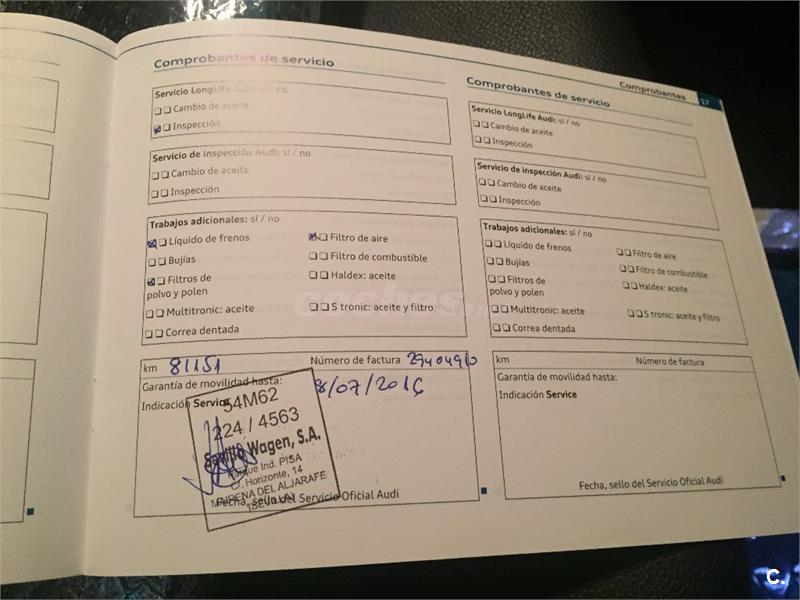 Comprobantes
17
Comprobantes de servicio
Servicio LongLife Audi: sí / no
Cambio de aceite
Inspección
Servicio de inspección Audi: sí / no
Cambio de aceite
Inspección
Trabajos adicionales: sí / no
Líquido de frenos
Filtro de aire
Bujías
Filtro de combustible
Filtros de
polvo y polen
Haldex: aceite
Multitronic: aceite
S tronic: aceite y filtro
Correa dentada
km 81151
Número de factura
Garantía de movilidad hasta:
8/07/2016
Indicación Service
54M62
224 / 4563
Sevilla Wagen, S.A.
Parque Ind. PISA
C/. Horizonte, 14
MAIRENA DEL ALJARAFE
Fecha, sello del Servicio Oficial Audi
Comprobantes de servicio
Servicio LongLife Audi: sí / no
Cambio de aceite
Inspección
Servicio de inspección Audi: sí / no
Cambio de aceite
Inspección
Trabajos adicionales: sí / no
Líquido de frenos
Filtro de aire
Bujías
Filtro de combustible
Filtros de
polvo y polen
Haldex: aceite
Multitronic: aceite
S tronic: aceite y filtro
Correa dentada
km
Número de factura
Garantía de movilidad hasta:
Indicación Service
Fecha, sello del Servicio Oficial Audi
coches
C.